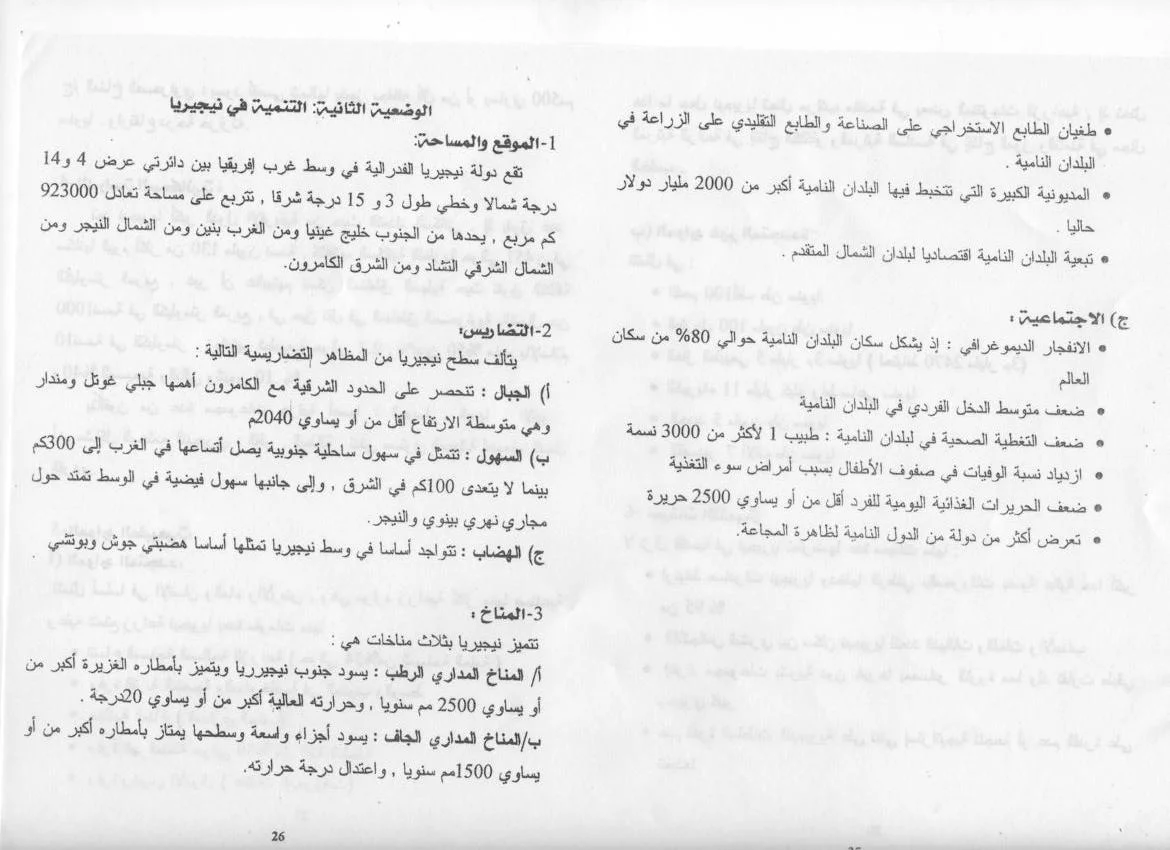 طغيان الطابع الاستخراجي على الصناعة والطابع التقليدي على الزراعة في
البلدان النامية .
المديونية الكبيرة التي تتخبط فيها البلدان النامية أكبر من 2000 مليار دولار
حاليا .
تبعية البلدان النامية اقتصاديا لبلدان الشمال المتقدم .
ج) الاجتماعية :
الانفجار الديموغرافي : إذ يشكل سكان البلدان النامية حوالي 80% من سكان
العالم
ضعف متوسط الدخل الفردي في البلدان النامية
ضعف التغطية الصحية في لبلدان النامية : طبيب 1 لأكثر من 3000 نسمة
ازدياد نسبة الوفيات في صفوف الأطفال بسبب أمراض سوء التغذية
ضعف الحريرات الغذائية اليومية للفرد أقل من أو يساوي 2500 حريرة
تعرض أكثر من دولة من الدول النامية لظاهرة المجاعة.
الوضعية الثانية: التنمية في نيجيريا
1-الموقع والمساحة:
تقع دولة نيجيريا الفدرالية في وسط غرب إفريقيا بين دائرتي عرض 4 و14
درجة شمالا وخطي طول 3 و 15 درجة شرقا , تتربع على مساحة تعادل 923000
كم مربع , يحدها من الجنوب خليج غينيا ومن الغرب بنين ومن الشمال النيجر ومن
الشمال الشرقي التشاد ومن الشرق الكامرون.
2-التضاريس:
يتألف سطح نيجيريا من المظاهر التضاريسية التالية :
أ) الجبال : تنحصر على الحدود الشرقية مع الكامرون أهمها جبلي غوتل ومندار
وهي متوسطة الارتفاع أقل من أو يساوي 2040م
ب) السهول : تتمثل في سهول ساحلية جنوبية يصل أتساعها في الغرب إلى 300كم
بينما لا يتعدى 100كم في الشرق , وإلى جانبها سهول فيضية في الوسط تمتد حول
مجاري نهري بينوي والنيجر.
ج) الهضاب : تتواجد أساسا في وسط نيجيريا تمثلها أساسا هضبتي جوش وبوتشي
3-المناخ :
تتميز نيجيريا بثلاث مناخات هي :
أ/ المناخ المداري الرطب: يسود جنوب نيجيرريا ويتميز بأمطاره الغزيرة أكبر من
أو يساوي 2500 مم سنويا , وحرارته العالية أكبر من أو يساوي 20درجة .
ب/المناخ المداري الجاف: يسود أجزاء واسعة وسطحها يمتاز بأمطاره أكبر من أو
يساوي 1500مم سنويا , واعتدال درجة حرارته.
26